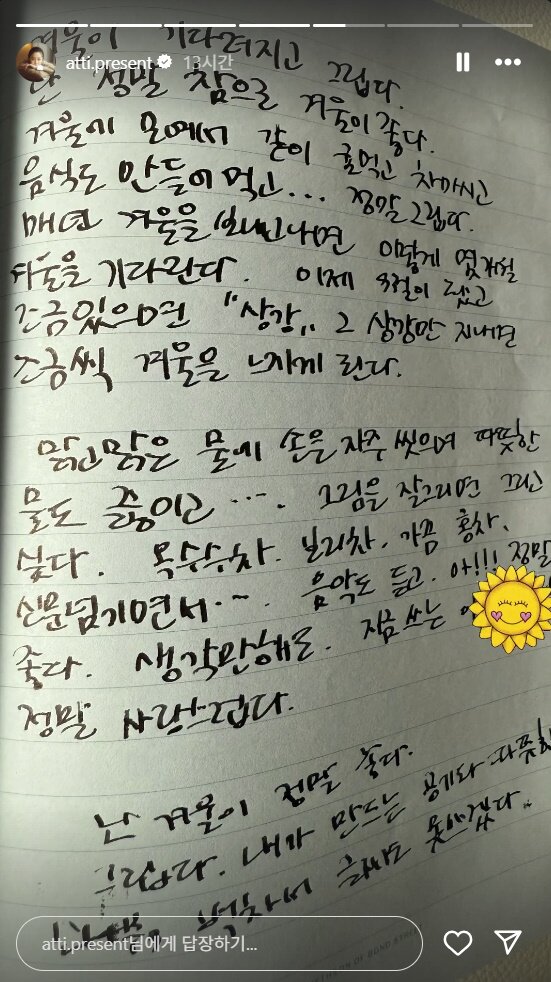 atti.present 13시간
겨울이 기다려지고 그립다.
난 정말 참으로 겨울이 좋다.
겨울에 모여서 같이 굴먹고 차마시고
음식도 만들어 먹고... 정말 그립다.
매년 겨울을 보내고나면 이렇게 몇개월
겨울을 기다린다. 이제 9월이 됐고
조금있으면 "상강" 그 상강만 지내면
조금씩 겨울을 느끼게 된다.
맑고맑은 물에 손을 자주 씻으며 따뜻한
물도 끓이고 .... 그림을 잘그리면 그리고
싶다. 옥수수차. 보리차. 가끔 홍차.
신문넘기면서... 음악도 듣고. 아!!! 정말
좋다. 생각만해도. 지금 쓰는
정말 사랑스럽다.
난 겨울이 정말 좋다.
그립다. 내가 만드는 공기와 따뜻한
벅차서 글씨도 못쓰겠다.
atti.present님에게 답장하기...